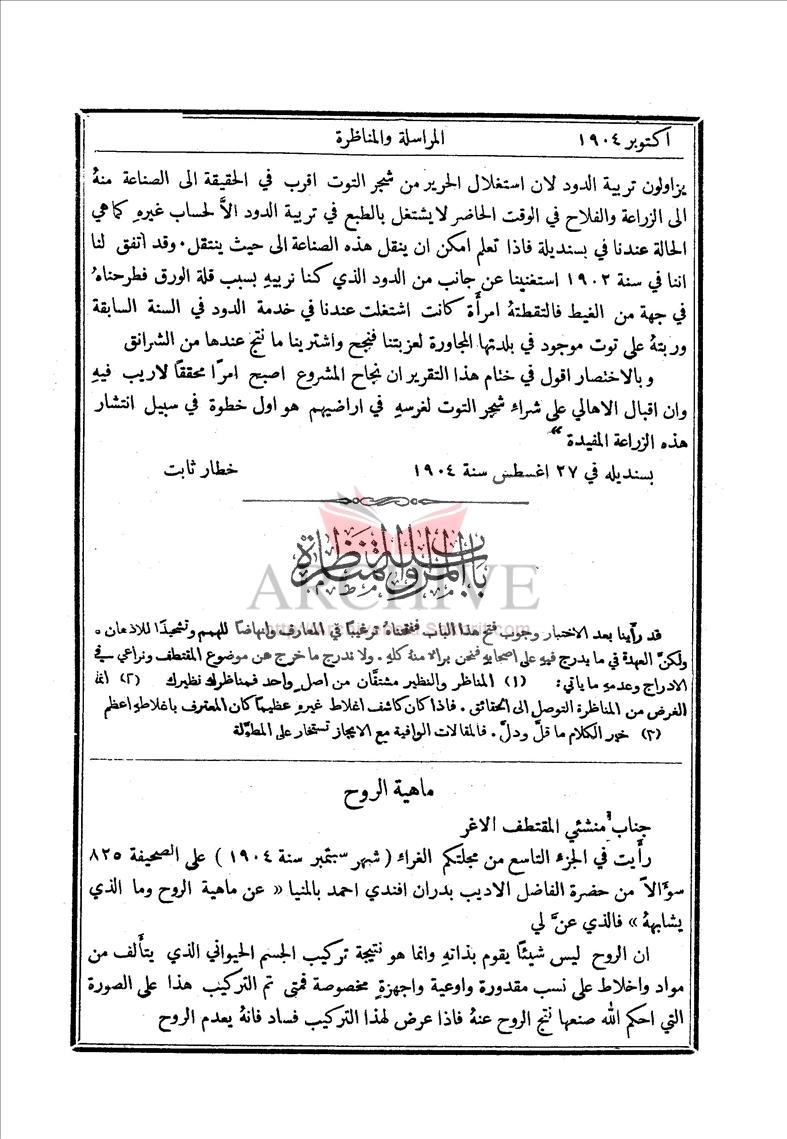 اكتوبر ١٩٠٤ المراسلة والمناظرة
يزاولون تربية الدود لان استغلال الحرير من شجر التوت اقرب في الحقيقة الى الصناعة منهُ
الى الزراعة والفلاح في الوقت الحاضر لا يشتغل بالطبع في تربية الدود الاَّ لحساب غيرهِ كما هي
الحالة عندنا في بسنديلة فاذا تعلم امكن ان ينقل هذه الصناعة الى حيث ينتقل . وقد اتفق لنا
اننا في سنة ١٩٠٢ استغنينا عن جانب من الدود الذي كنا نربيهِ بسبب قلة الورق فطرحناهُ
في جهة من الغيط فالتقطتهُ امرأَة كانت اشتغلت عندنا في خدمة الدود في السنة السابقة
وربتهُ على توت موجود في بلدتها المجاورة لعزبتنا فنجح واشترينا ما نتج عندها من الشرانق
وبالاختصار اقول في ختام هذا التقرير ان نجاح المشروع اصبح امرًا محققًا لاريب فيهِ
وان اقبال الاهالي على شراء شجر التوت لغرسهِ في اراضيهم هو اول خطوة في سبيل انتشار
هذه الزراعة المفيدة “
بسنديله في ٢٧ اغسطس سنة ١٩٠٤ خطار ثابت
باب المراسلة والمناظرة
ARCHIVE
قد رأَينا بعد الاختبار وجوب فتح هذا الباب ففتحناهُ ترغيبًا في المعارف وانهاضًا للهمم وتشحيذًا للاذهان .
ولكنَّ العهدة في ما يدرج فيهِ على اصحابهِ فنحن برالا منهُ كلهِ . ولا ندرج ما خرج عن موضوع المقتطف ونراعي في
الادراج وعدمهِ ما ياتي : (١) المناظر والنظير مشتقَّان من اصل واحد فمناظرك نظيرك (٢) انما
الغرض من المناظرة التوصل الى الحقائق . فاذا كان كاشف اغلاط غيرهِ عظيمًا كان المعترف باغلاطهِ اعظم
(٣) خير الكلام ما قلَّ ودلَّ . فالمقالات الوافية مع الايجاز تستخار على المطوَّلة
ماهية الروح
جناب منشئي المقتطف الاغر
رأَيت في الجزء التاسع من مجلتكم الغراء ( شهر سبتمبر سنة ١٩٠٤ ) على الصحيفة ٨٢٥
سوَّالاً من حضرة الفاضل الاديب بدران افندي احمد بالمنيا « عن ماهية الروح وما الذي
يشابههُ » فالذي عنَّ لي
ان الروح ليس شيئًا يقوم بذاتهِ وانما هو نتيجة تركيب الجسم الحيواني الذي يتأَلف من
مواد واخلاط على نسب مقدورة واوعية واجهزةٍ مخصوصة فمتى تم التركيب هذا على الصورة
التي احكم الله صنعها نتج الروح عنهُ فاذا عرض لهذا التركيب فساد فانهُ يعدم الروح